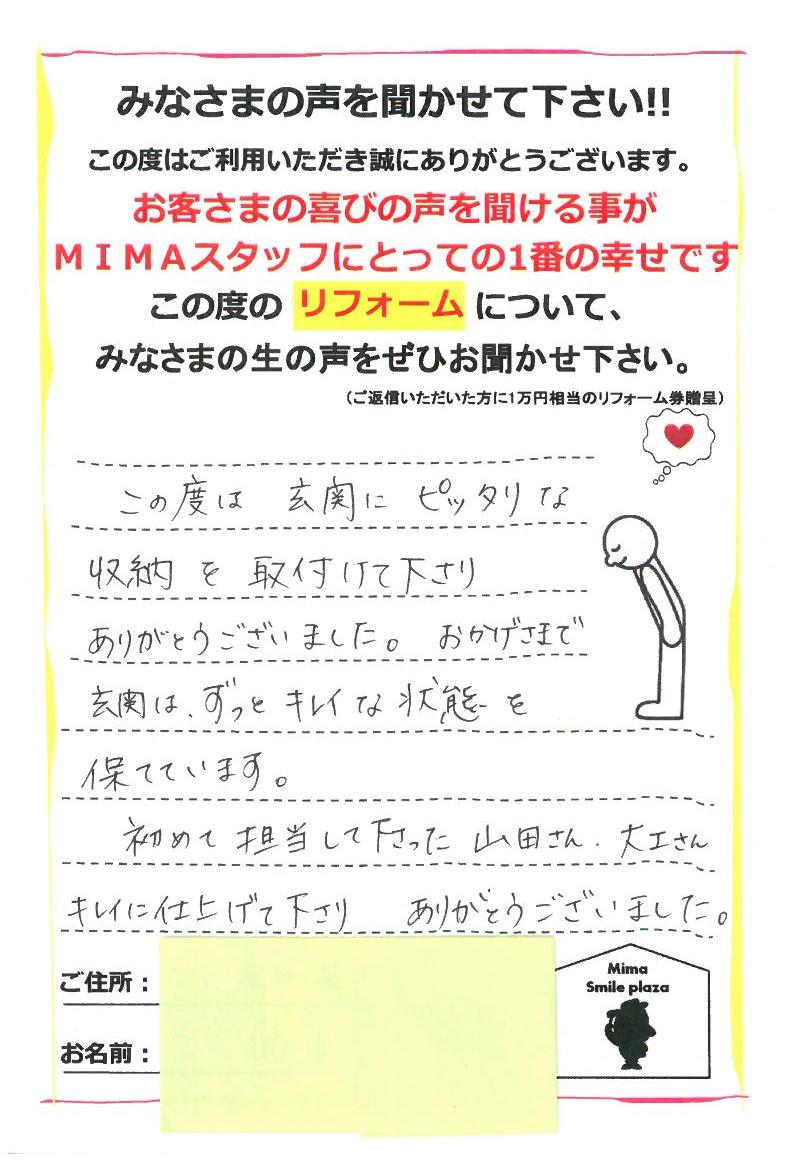 みなさまの声を聞かせて下さい!!
この度はご利用いただき誠にありがとうございます。
お客さまの喜びの声を聞ける事が
ＭＩＭＡスタッフにとっての1番の幸せです
この度の リフォーム について、
みなさまの生の声をぜひお聞かせ下さい。
（ご返信いただいた方に1万円相当のリフォーム券贈呈）
この度は 玄関に ピッタリな
収納を取付けて下さり
ありがとうございました。 おかげさまで
玄関は、ずっとキレイな状態を
保てています。
初めて担当して下さった 山田さん、大工さん
キレイに仕上げて下さり ありがとうございました。
ご住所：
お名前：
Mima
Smile plaza